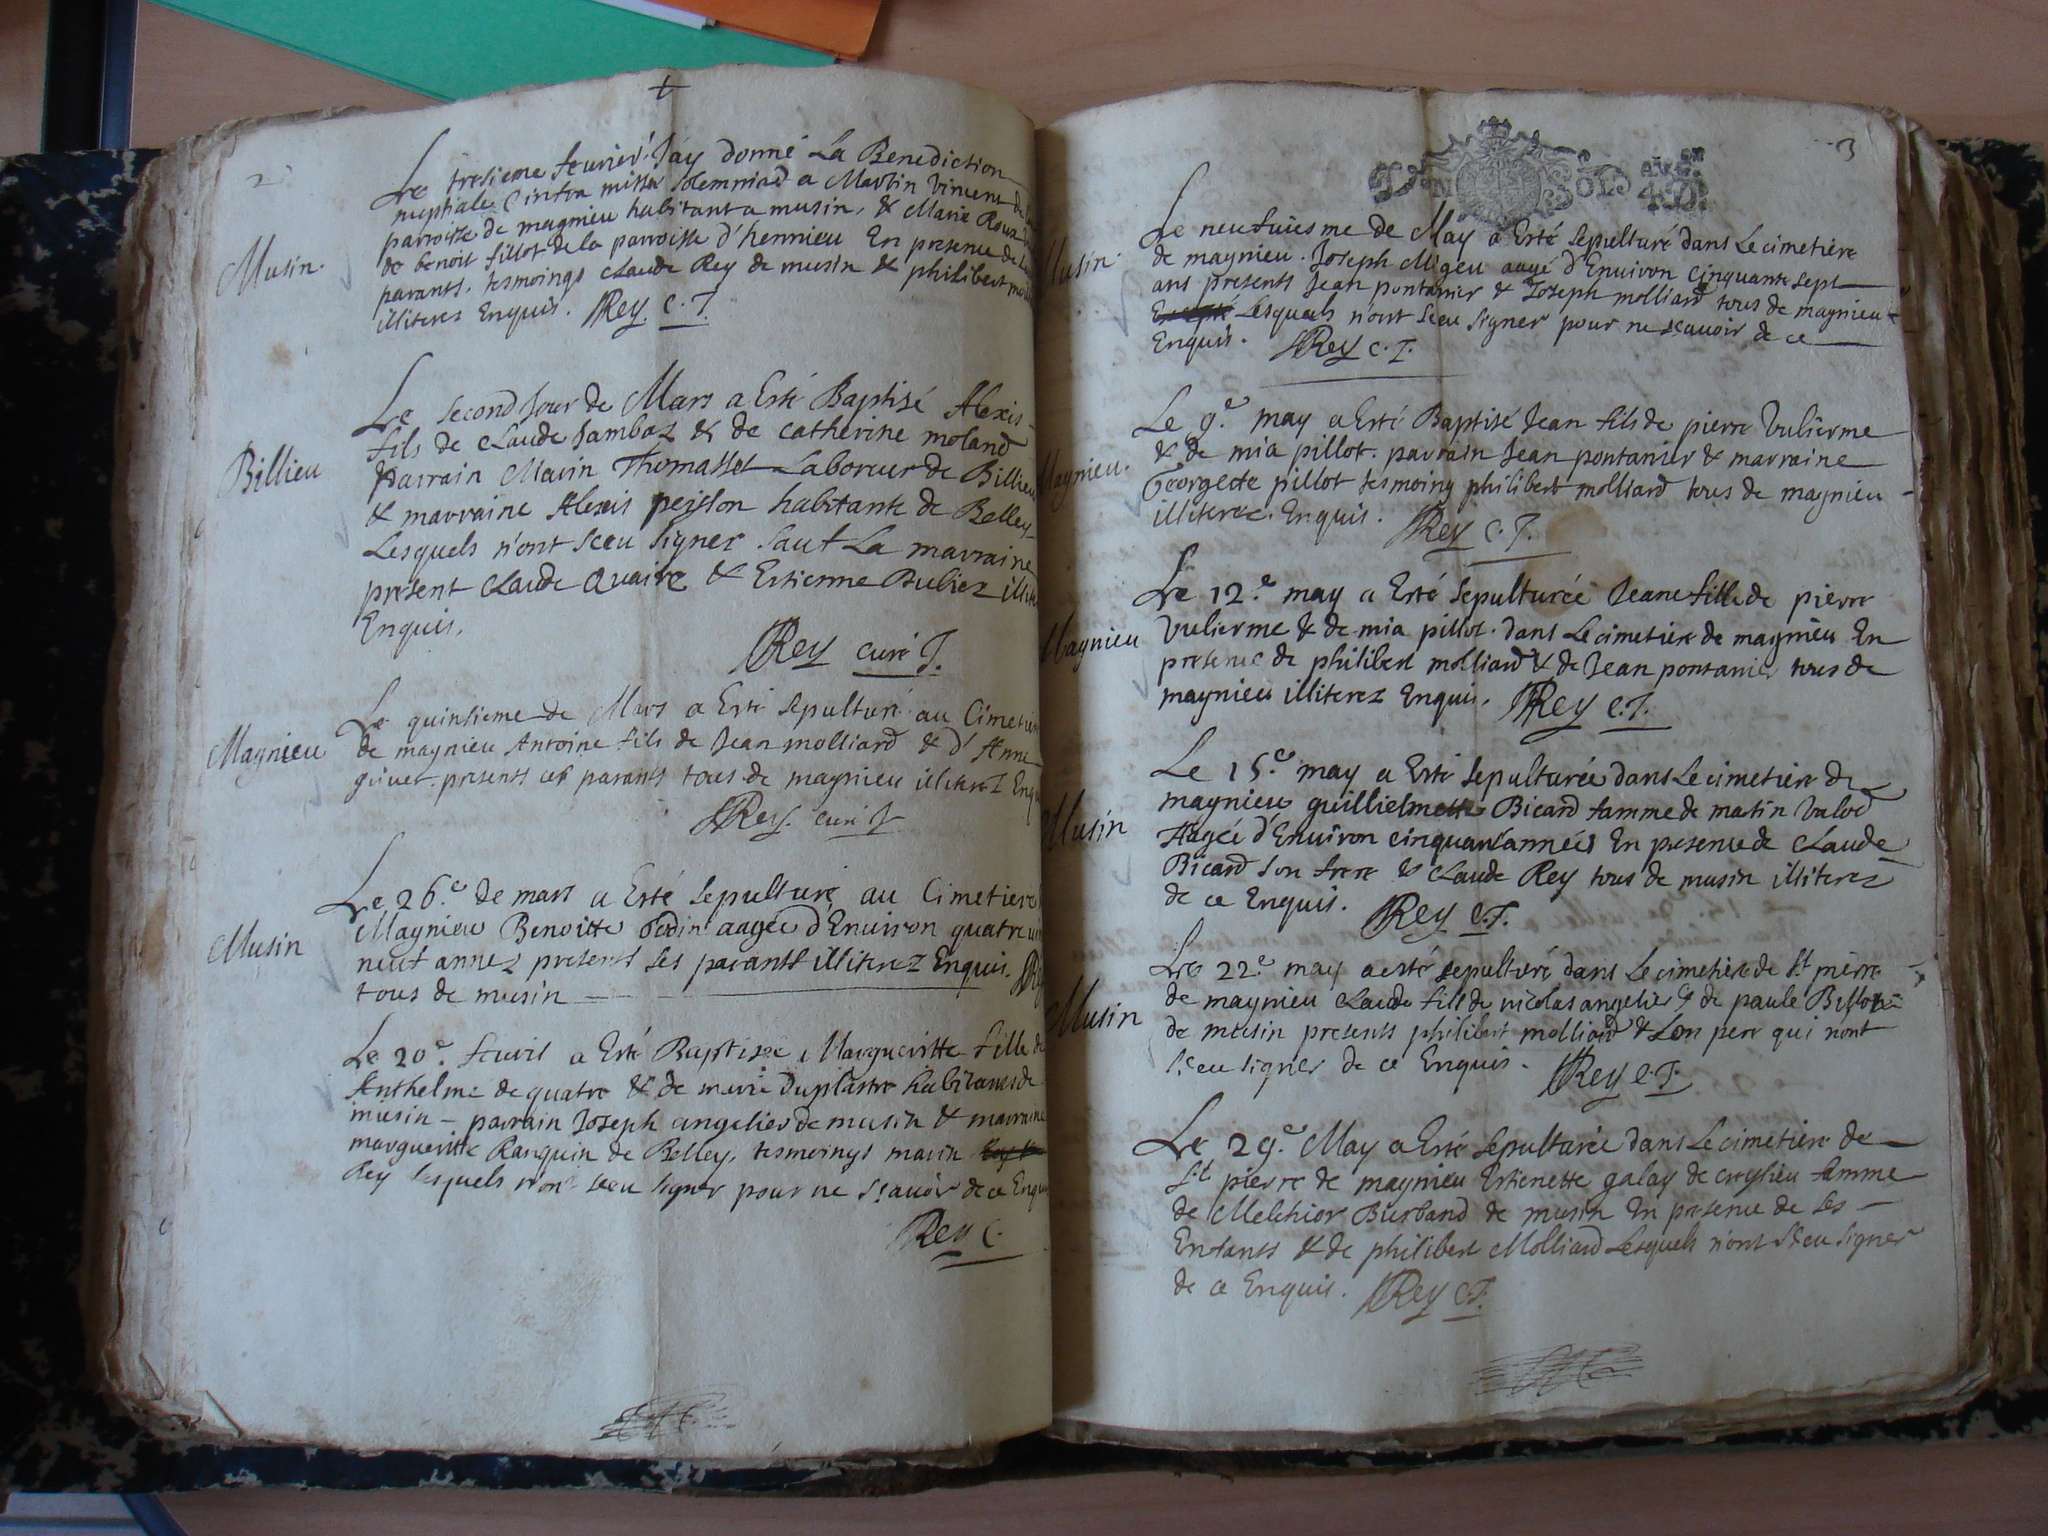 2
Musin.
Le tresieme fevrier Jay donné La Benediction
nuptiale intra missa solemnia a Martin Vincent de
parroisse de magnieu habitant a musin, & Marie Roux
de benoit fillot de la parroisse d'hennieu En presence de
parants. tesmoings Claude Rey de musin & philibert
illiterez Enquis. Rey C. J.
Billieu
Le second Jour de Mars a Esté Baptisé Alexis
fils de claude Jambaz & de catherine moland
parrain Marin Thomasset Laboreur de Billieu
& marraine Alexis peysson habitante de Belley
Lesquels n'ont sceu signer sauf La marraine
present claude Quaire & Estienne Bubiez
Enquis.
Rey curé J.
Magnieu
Le quinsieme de Mars a Esté sepulturé au Cimetiere
de magnieu Antoine fils de Jean molliard & d'Anne
presents ces parants tous de magnieu illiterez
Rey. curé J
Musin
Le 26.e de mars a Esté sepulturé au Cimetiere
Magnieu Benoitte aagée d'Environ quatre
neuf annez presents ses parants illiterez Enquis.
tous de musin
Le 20.e a Esté Baptisée Margueritte fille de
Anthelme de quatre & de marie Duplastre habitants de
musin - parrain Joseph angelier de musin & marraine
margueritte Ranquin de Belley, tesmoings marin
Rey lesquels n'ont sceu signer pour ne sçavoir de ce
Rey C.
3
Musin.
Le neufuiesme de May a Esté sepulturé dans Le cimetiere
de magnieu. Joseph Migeu aagé d'Environ cinquante sept
ans presents Jean pontanier & Joseph molliard tous de magnieu
Lesquels n'ont sceu signer pour ne scauoir de ce
Enquis. Rey C. J.
Magnieu.
Le 9.e may a Esté Baptisé Jean fils de pierre Vulierme
& de mia pillot. parrain Jean pontanier & marraine
Georgette pillot tesmoing philibert molliard tous de magnieu
Enquis. Rey C. J.
Magnieu
Le 12.e may a Esté sepulturée Jeane fille de pierre
Vulierme & de mia pillot. dans Le cimetiere de magnieu En
presence de philibert molliard & de Jean pontanier tous de
magnieu illiterez Enquis. Rey C. J.
Musin
Le 15.e may a Esté sepulturée dans Le cimetiere de
magnieu guillielmette Bicard famme de matin
Aagée d'Environ cinquante années En presence de Claude
Bicard son frere & claude Rey tous de musin illiterez
de ce Enquis. Rey C. J.
Musin
Le 22.e may a esté sepulturé dans Le cimetiere de St pierre
de magnieu Claude fils de nicolas angelier & de paule
de musin presents philibert molliard & son pere qui nont
sceu signer de ce Enquis. Rey C. J.
Le 29.e May a Esté sepulturée dans Le cimetiere de
St pierre de magnieu Estienette galay de famme
de Melchior Burband de musin En presence de ses
Enfants & de philibert Molliard Lesquels n'ont sceu signer
de ce Enquis. Rey C. J.